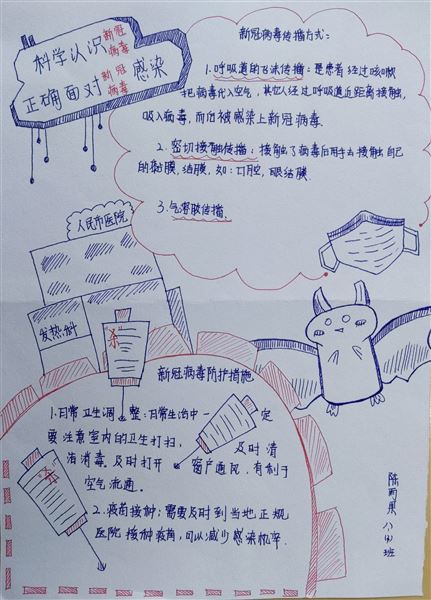 科学认识新冠病毒
正确面对新冠病毒感染
新冠病毒传播方式:
1.呼吸道的飞沫传播:是患者经过咳嗽
把病毒代入空气,其忆人经过呼吸道近距离接触,
吸入病毒,而后被感染上新冠病毒.
2.密切接触传播:接触了病毒后用手去接触自己
的黏膜,结膜,如:口腔,眼结膜.
3.气溶胶传播.
人民币医院
发热科
杀
新冠病毒防护措施
1.日常卫生调整:日常生活中一定
要注意室内的卫生打扫,及时清
洁消毒.及时打开窗户通风,有利于
空气流通。
杀
2.疫苗接种:需要及时到当地正规
医院接种疫苗,可以减少感染机率.
八四班